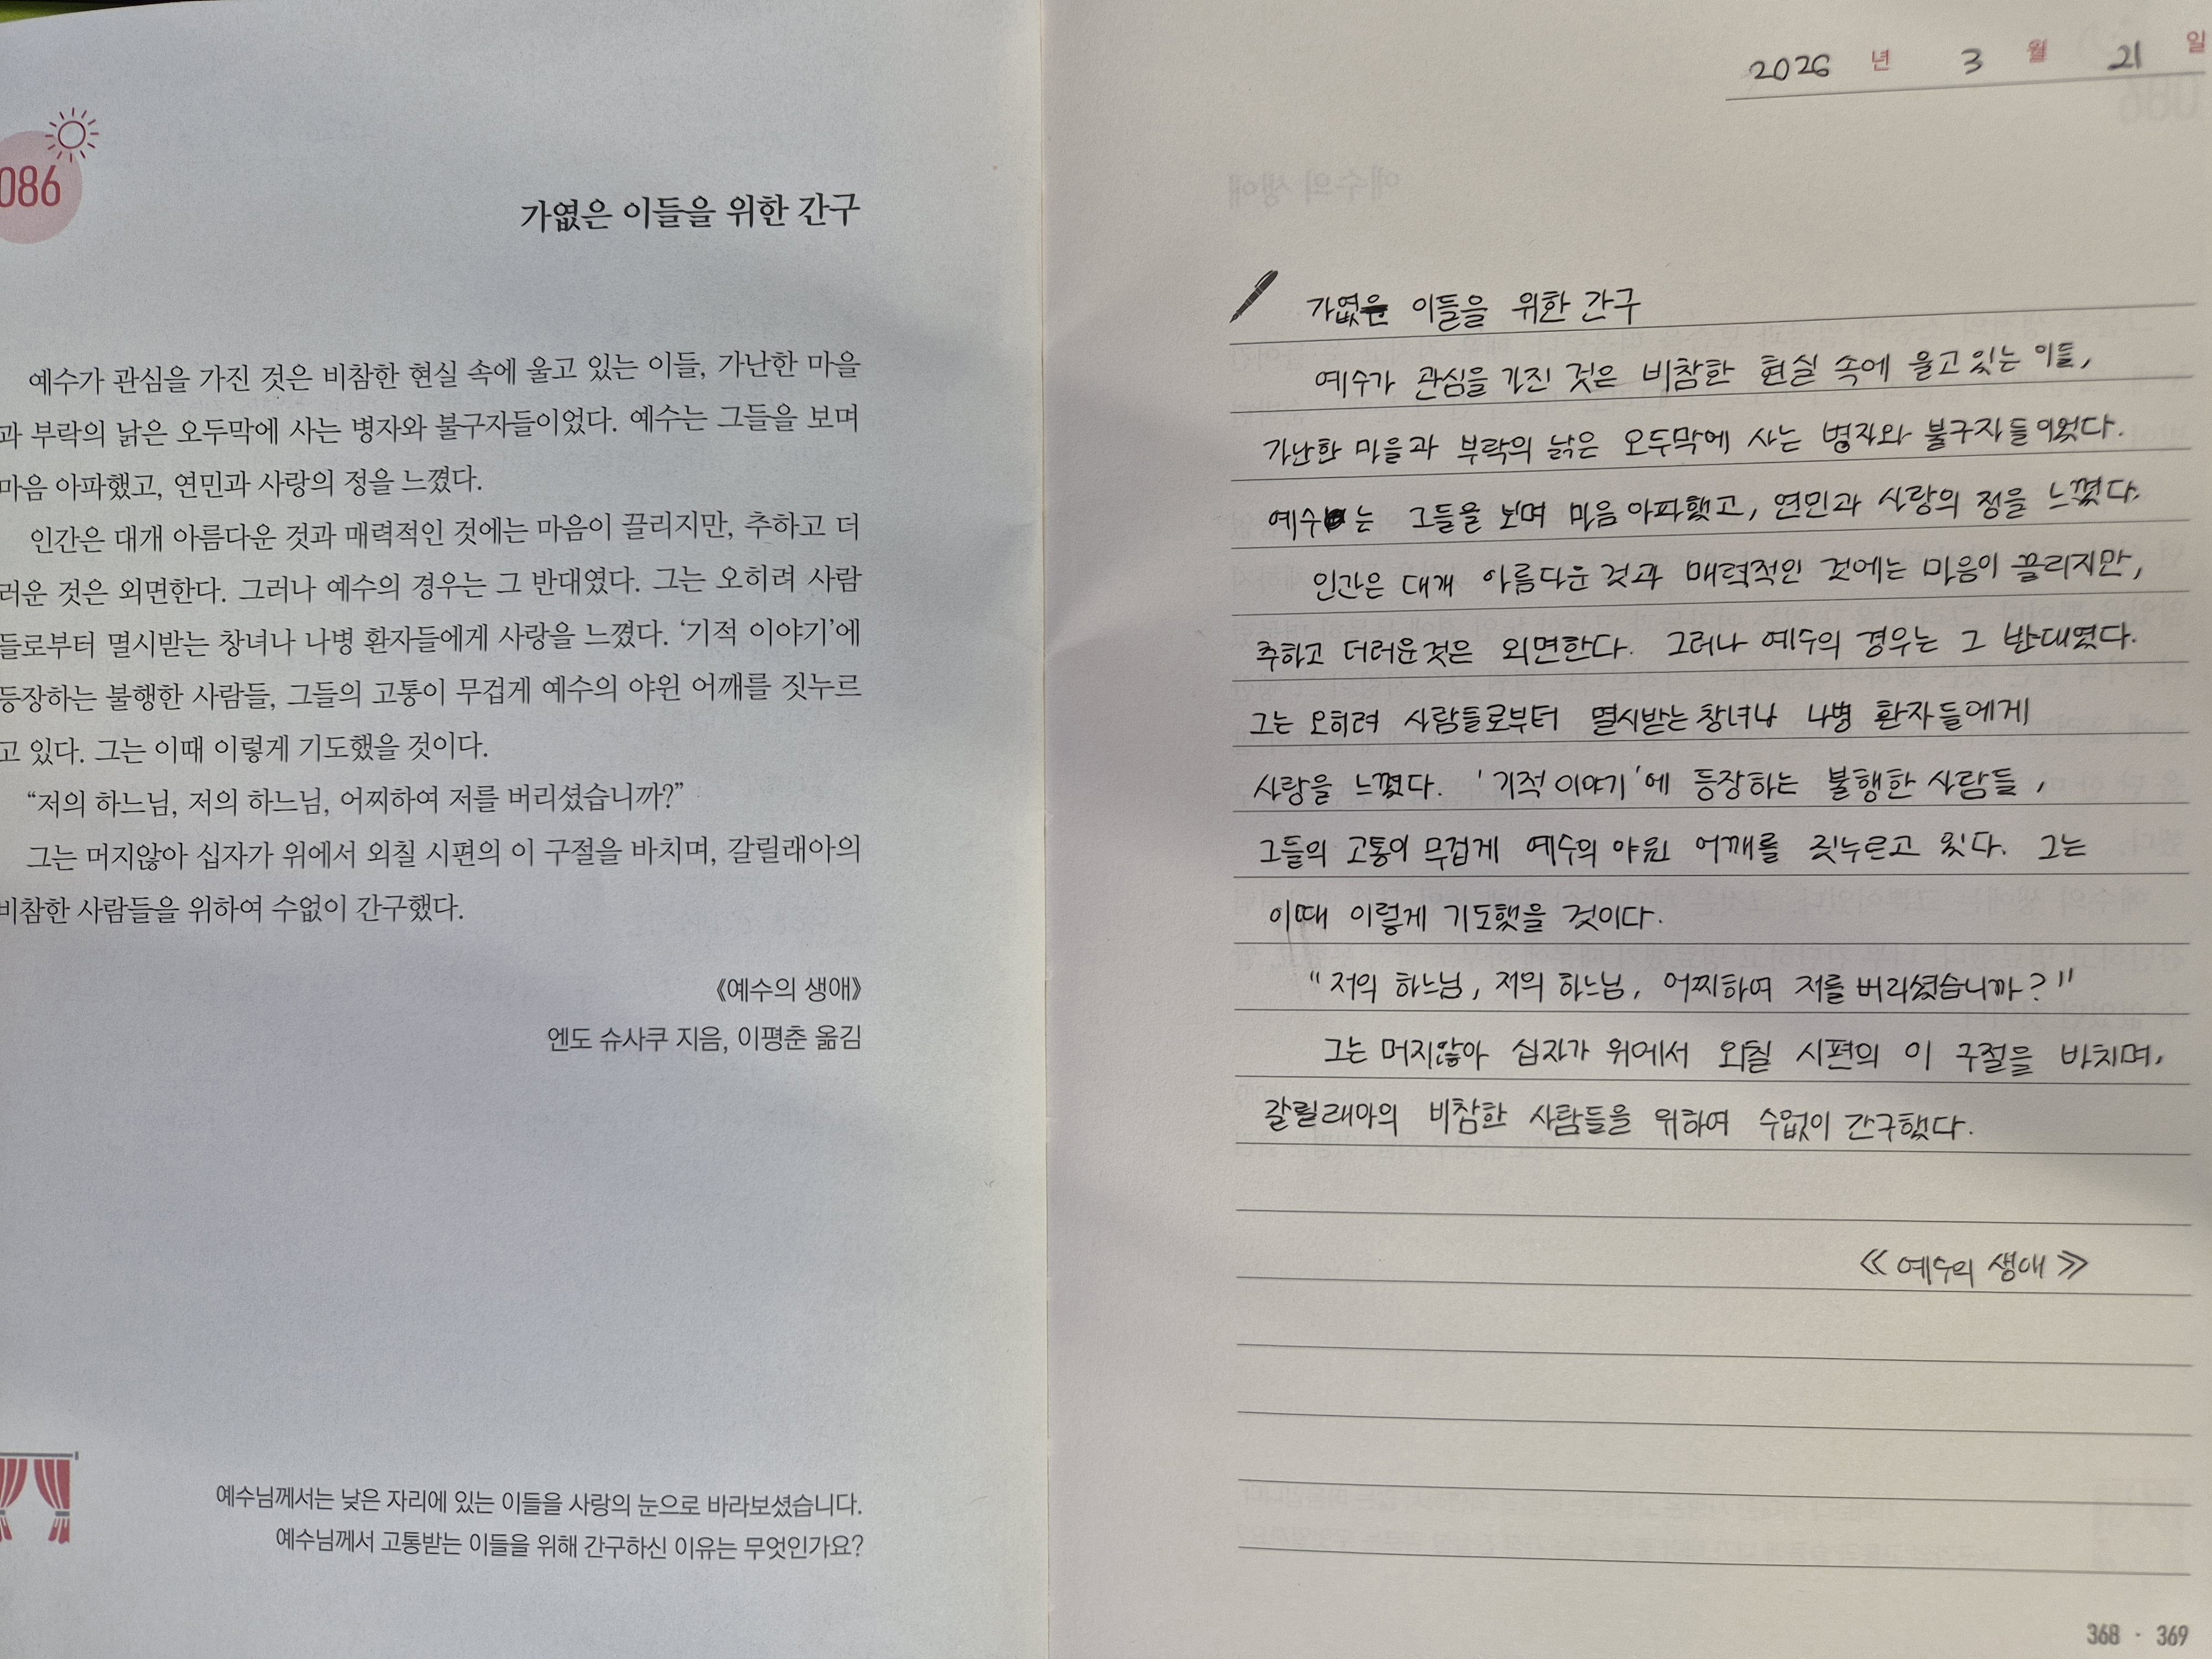 086
가엾은 이들을 위한 간구
예수가 관심을 가진 것은 비참한 현실 속에 울고 있는 이들, 가난한 마을
과 부락의 낡은 오두막에 사는 병자와 불구자들이었다. 예수는 그들을 보며
마음 아파했고, 연민과 사랑의 정을 느꼈다.
인간은 대개 아름다운 것과 매력적인 것에는 마음이 끌리지만, 추하고 더
러운 것은 외면한다. 그러나 예수의 경우는 그 반대였다. 그는 오히려 사람
들로부터 멸시받는 창녀나 나병 환자들에게 사랑을 느꼈다. ‘기적 이야기’에
등장하는 불행한 사람들, 그들의 고통이 무겁게 예수의 야윈 어깨를 짓누르
고 있다. 그는 이때 이렇게 기도했을 것이다.
“저의 하느님, 저의 하느님, 어찌하여 저를 버리셨습니까?”
그는 머지않아 십자가 위에서 외칠 시편의 이 구절을 바치며, 갈릴래아의
비참한 사람들을 위하여 수없이 간구했다.
《예수의 생애》
엔도 슈사쿠 지음, 이평춘 옮김
예수님께서는 낮은 자리에 있는 이들을 사랑의 눈으로 바라보셨습니다.
예수님께서 고통받는 이들을 위해 간구하신 이유는 무엇인가요?
2026 년 3 월 21 일
가엾은 이들을 위한 간구
예수가 관심을 가진 것은 비참한 현실 속에 울고 있는 이들,
가난한 마을과 부락의 낡은 오두막에 사는 병자와 불구자들이었다.
예수는 그들을 보며 마음 아파했고, 연민과 사랑의 정을 느꼈다.
인간은 대개 아름다운 것과 매력적인 것에는 마음이 끌리지만,
추하고 더러운 것은 외면한다. 그러나 예수의 경우는 그 반대였다.
그는 오히려 사람들로부터 멸시받는 창녀나 나병 환자들에게
사랑을 느꼈다. '기적 이야기'에 등장하는 불행한 사람들,
그들의 고통이 무겁게 예수의 야윈 어깨를 짓누르고 있다. 그는
이때 이렇게 기도했을 것이다.
"저의 하느님, 저의 하느님, 어찌하여 저를 버리셨습니까?"
그는 머지않아 십자가 위에서 외칠 시편의 이 구절을 바치며,
갈릴래아의 비참한 사람들을 위하여 수없이 간구했다.
《예수의 생애》
368 · 369